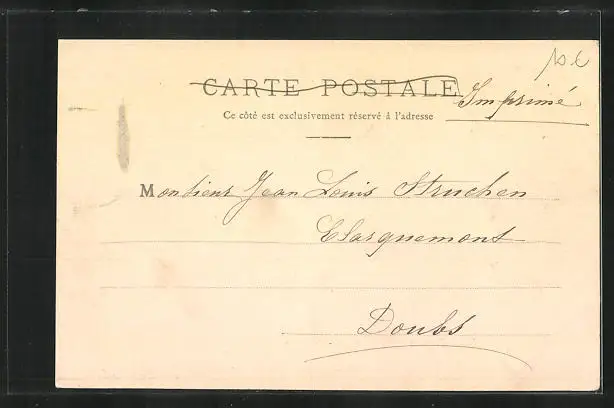 CARTE POSTALE
Imprimé
Ce côté est exclusivement réservé à l'adresse
Monsieur Jean Louis Struchen
Glasquemont
Doubs